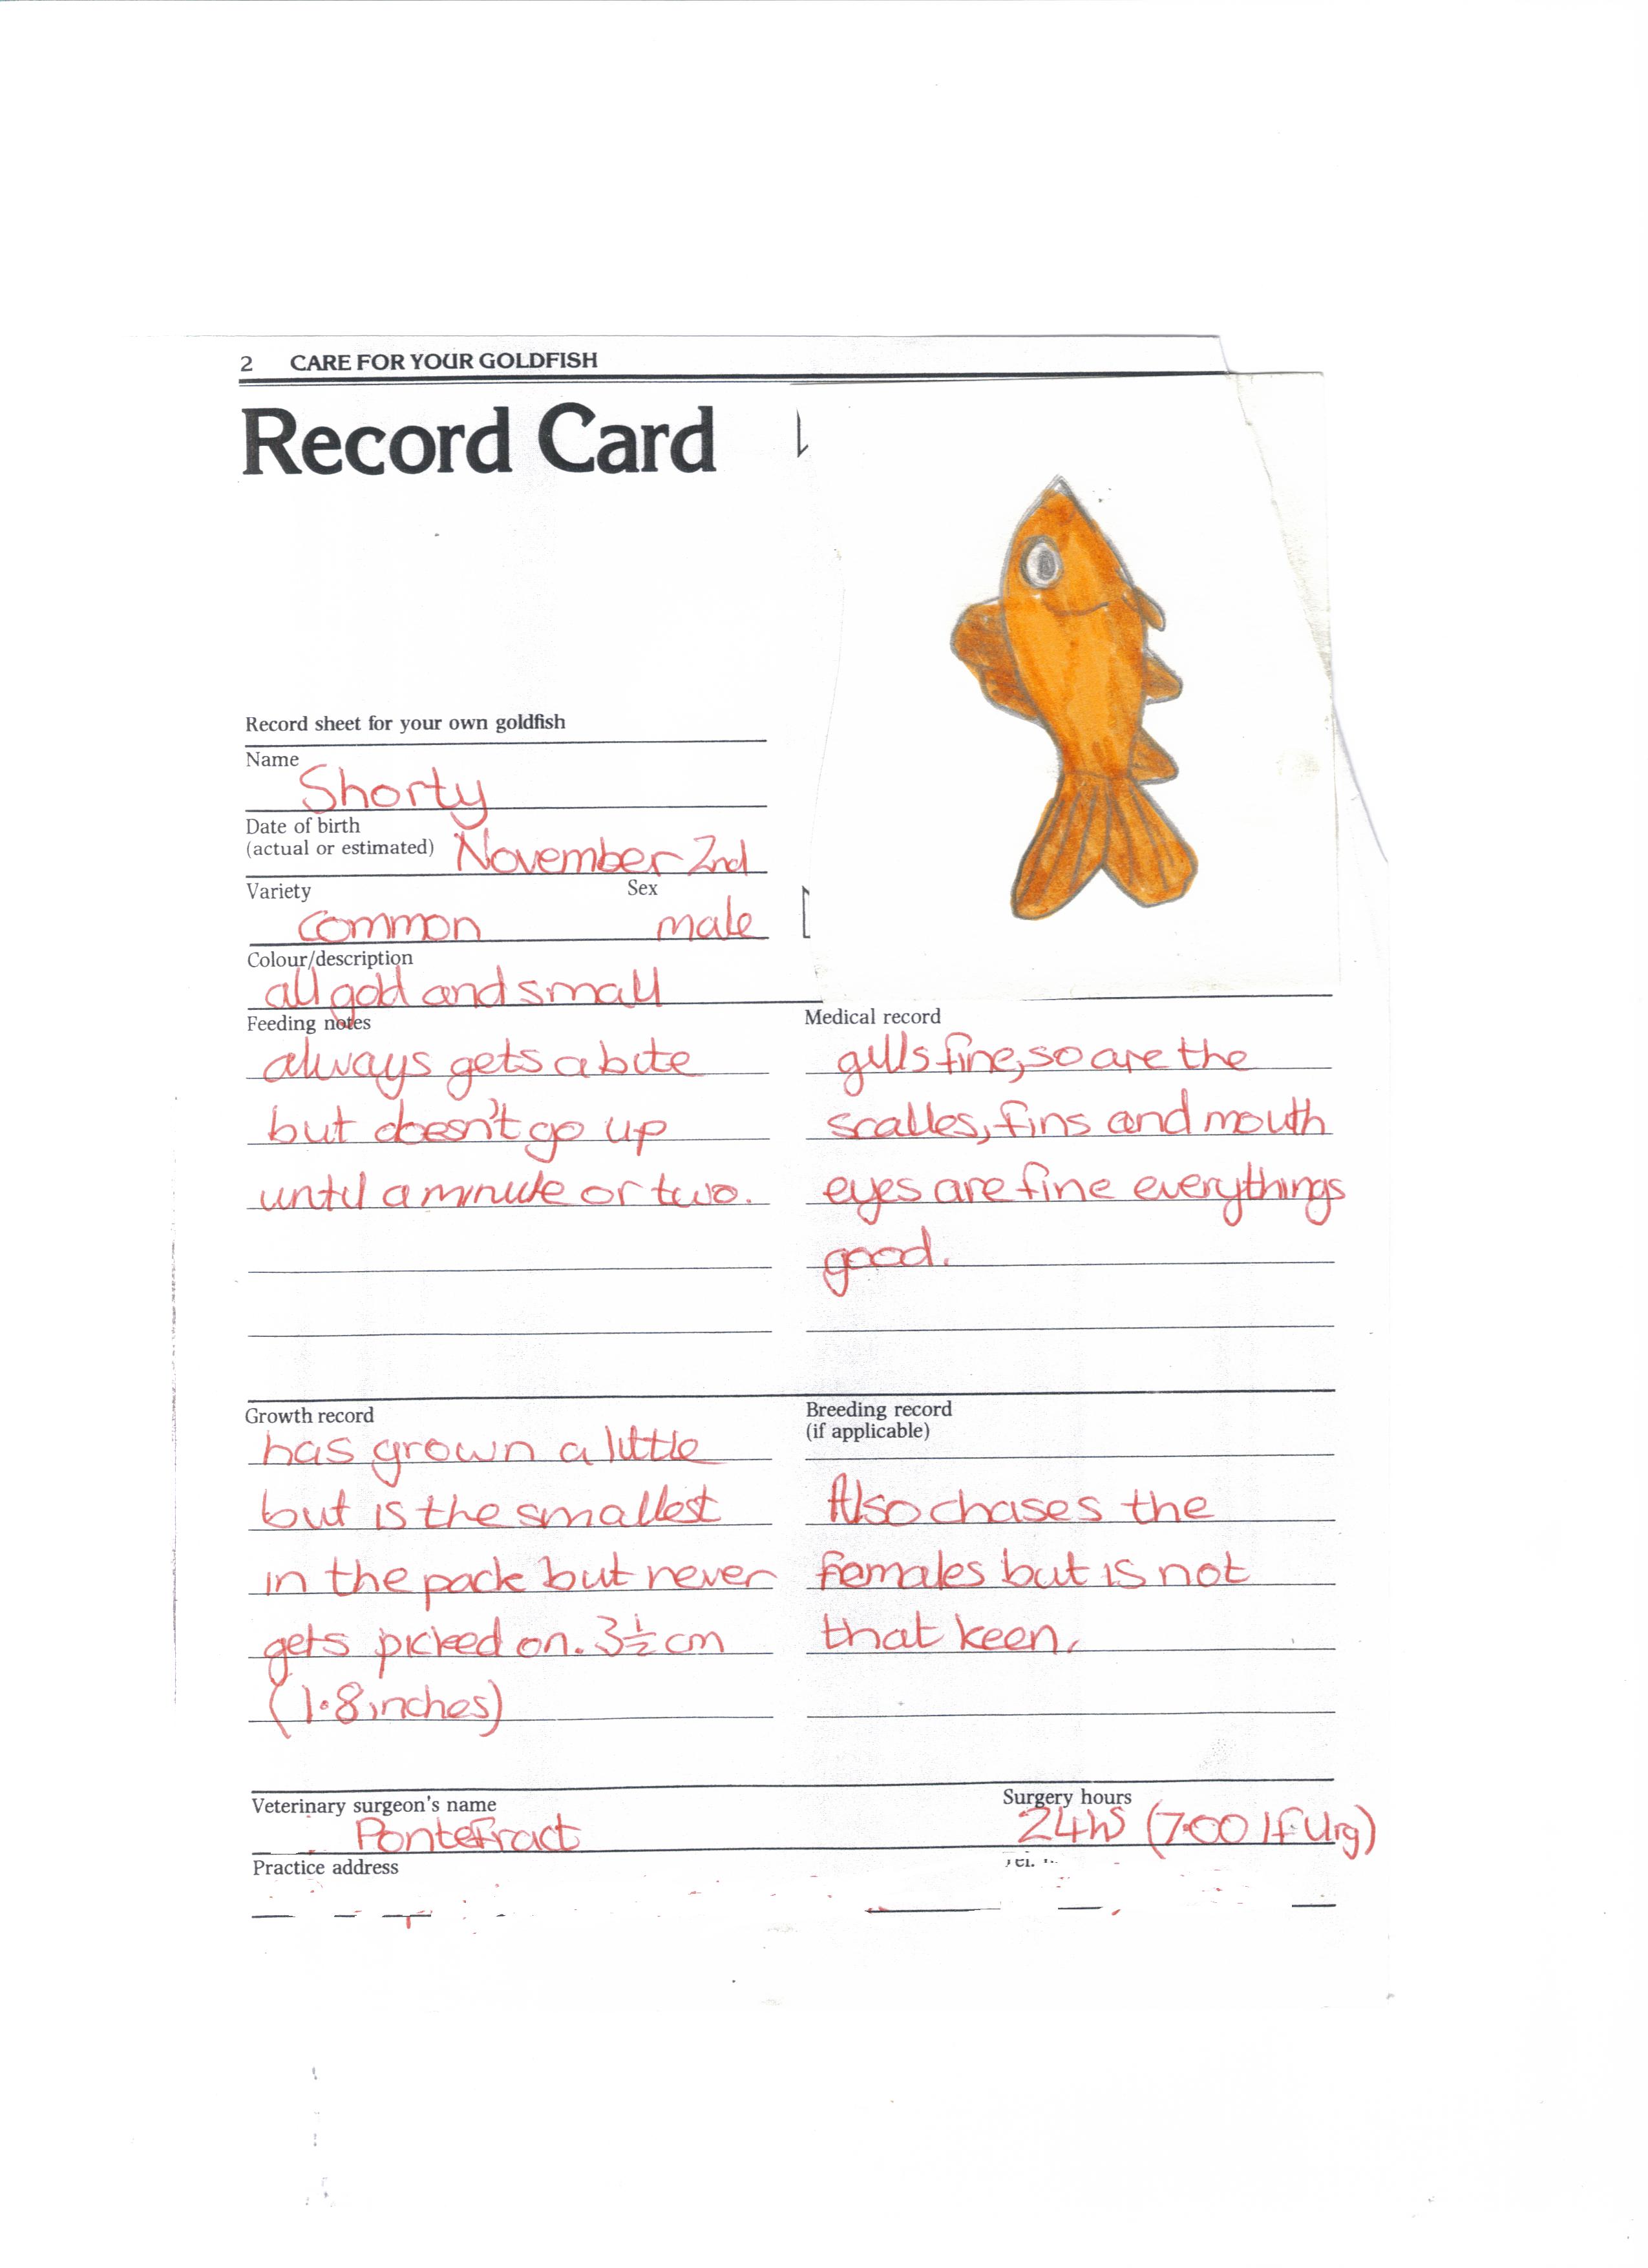 2 CARE FOR YOUR GOLDFISH
Record Card
Record sheet for your own goldfish
Name
Shorty
Date of birth
(actual or estimated) November 2nd
Variety Sex
common male
Colour/description
all gold and small
Feeding notes
always gets a bite
but doesn't go up
until a minute or two.
Medical record
gills fine, so are the
scalles, fins and mouth
eyes are fine everythings
good.
Growth record
has grown a little
but is the smallest
in the pack but never
gets picked on. 3½ cm
(1.8 inches)
Breeding record
(if applicable)
Also chases the
females but is not
that keen.
Veterinary surgeon's name Surgery hours
Pontefract 24hs (7.00 If Urg)
Practice address